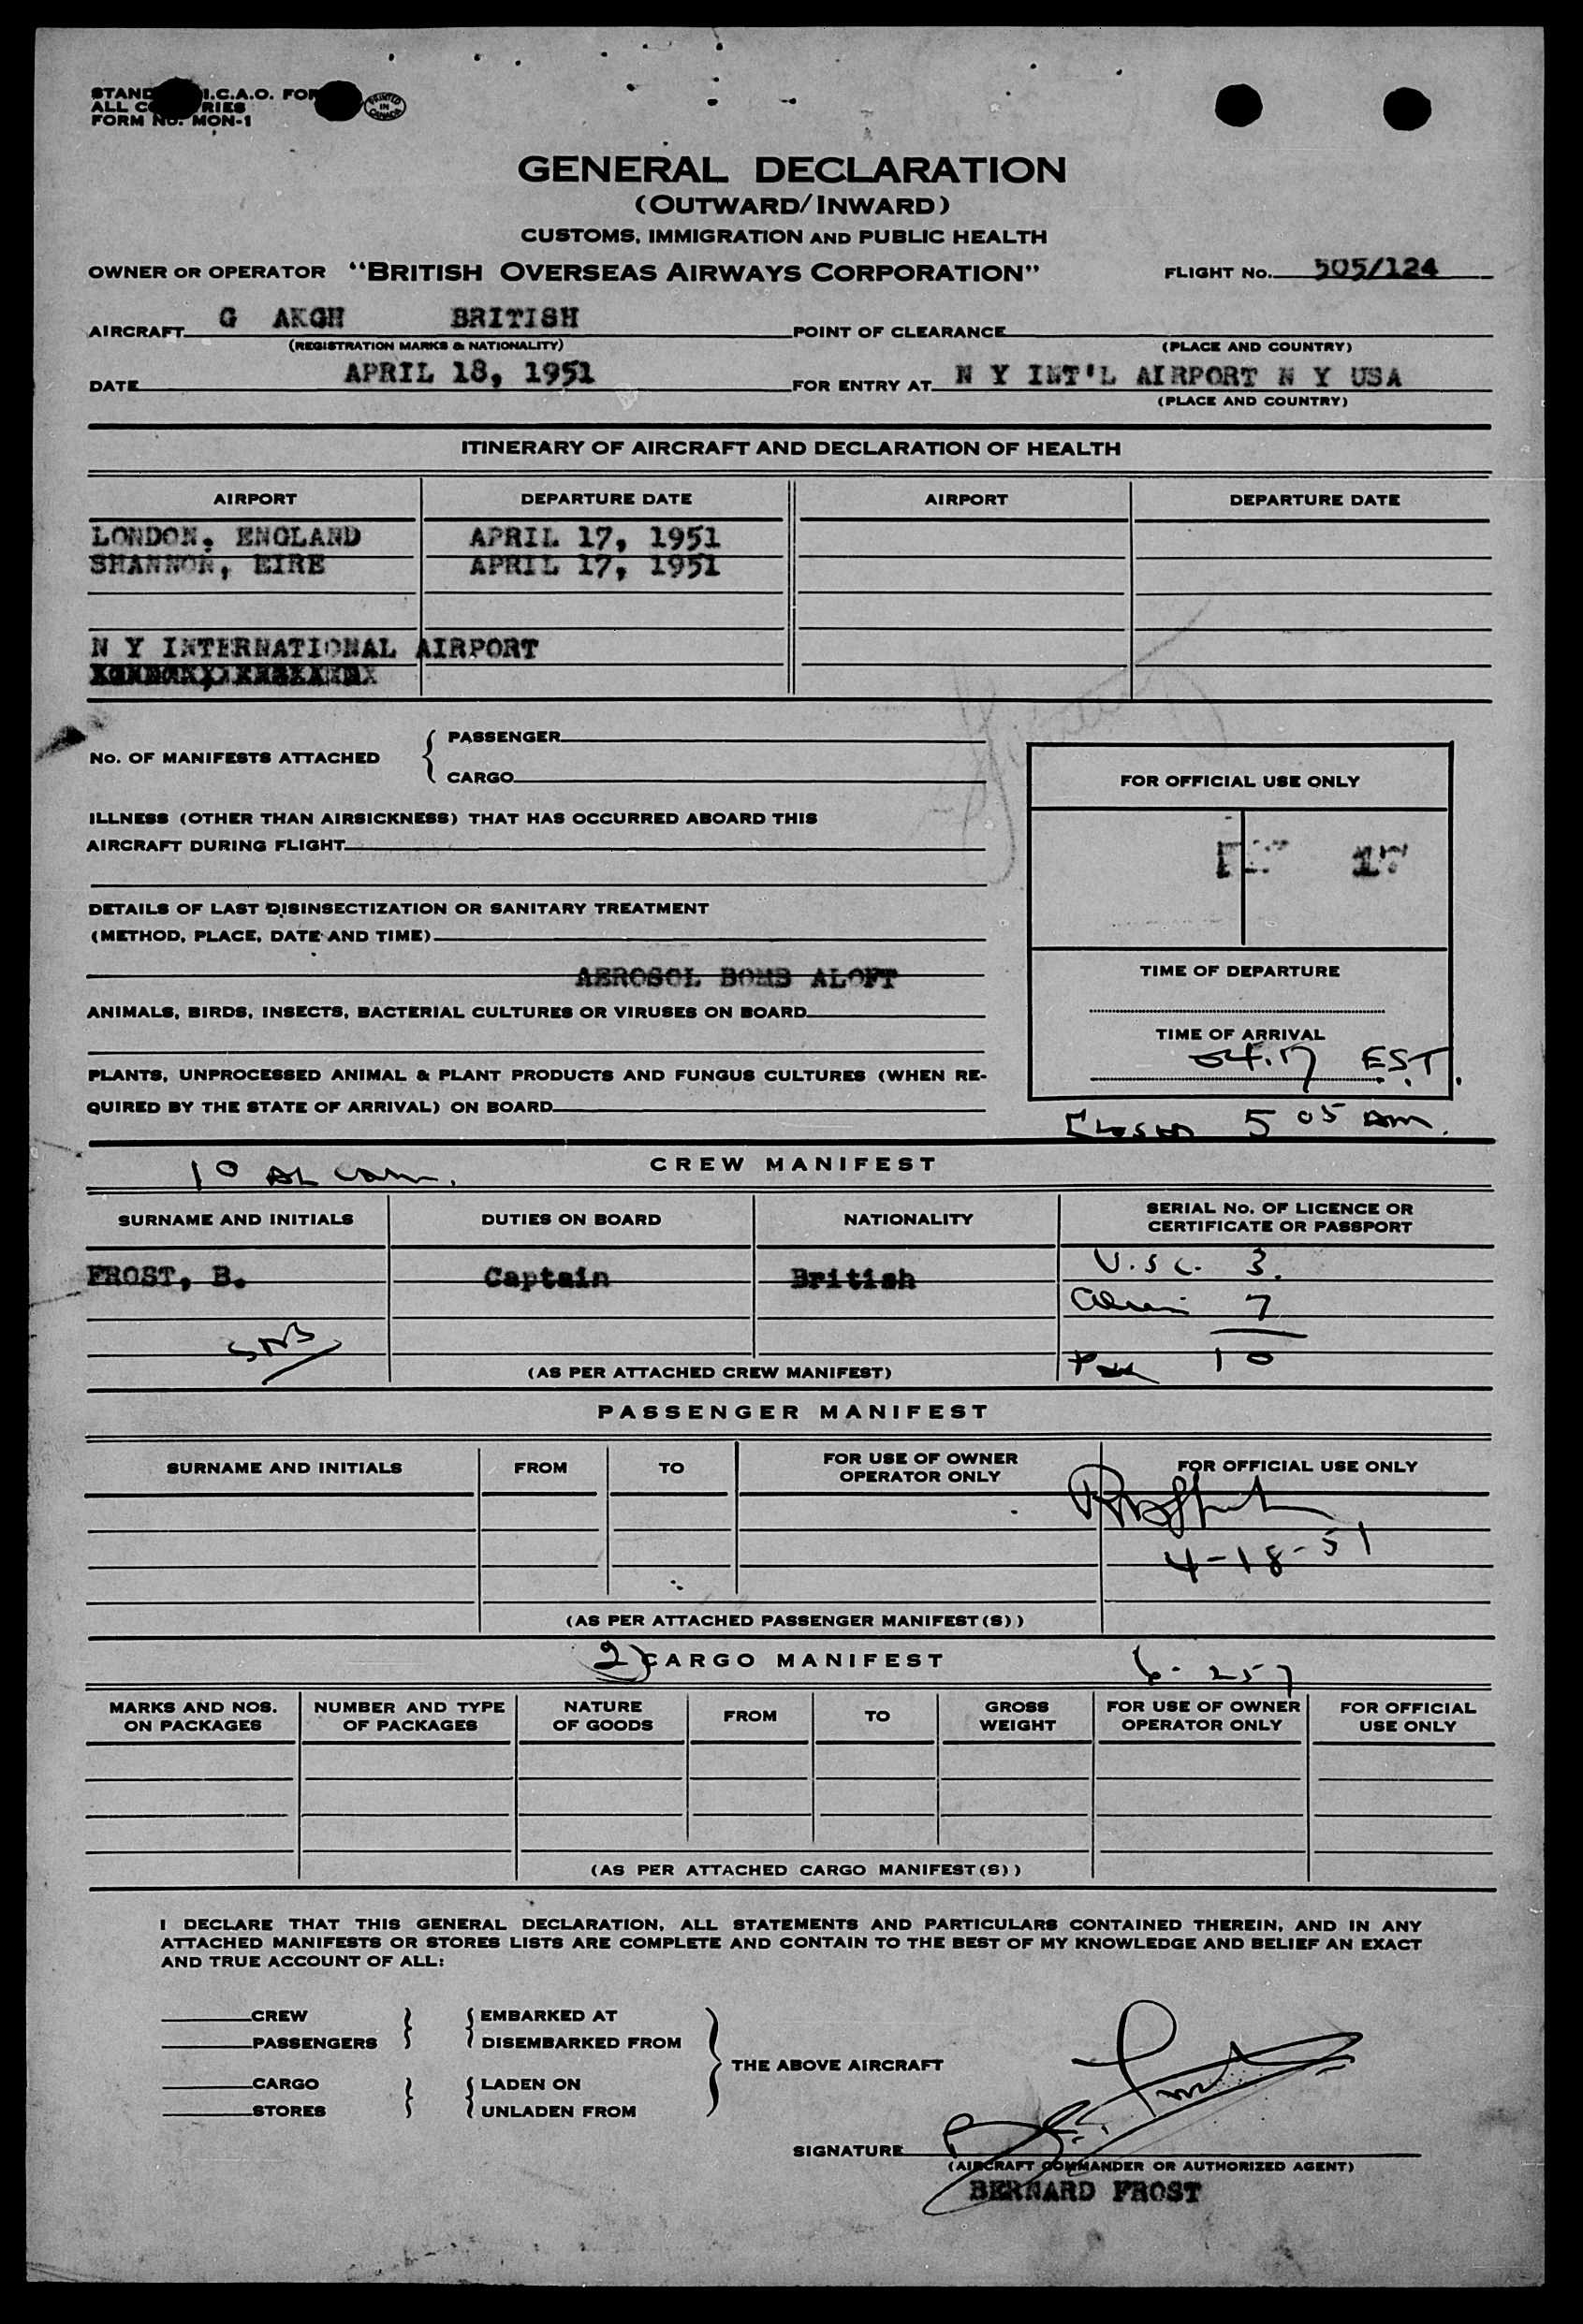 I.C.A.O.
ALL
FORM No. MON-1
PRINTED IN CANADA
GENERAL DECLARATION
(OUTWARD/INWARD)
CUSTOMS, IMMIGRATION AND PUBLIC HEALTH
OWNER OR OPERATOR "BRITISH OVERSEAS AIRWAYS CORPORATION" FLIGHT No. 505/124
AIRCRAFT G AKGH BRITISH POINT OF CLEARANCE
(REGISTRATION MARKS & NATIONALITY) (PLACE AND COUNTRY)
DATE APRIL 18, 1951 FOR ENTRY AT N Y INT'L AIRPORT N Y USA
(PLACE AND COUNTRY)
ITINERARY OF AIRCRAFT AND DECLARATION OF HEALTH
AIRPORT DEPARTURE DATE AIRPORT DEPARTURE DATE
LONDON, ENGLAND APRIL 17, 1951
SHANNON, EIRE APRIL 17, 1951
N Y INTERNATIONAL AIRPORT
No. OF MANIFESTS ATTACHED { PASSENGER
CARGO
FOR OFFICIAL USE ONLY
ILLNESS (OTHER THAN AIRSICKNESS) THAT HAS OCCURRED ABOARD THIS
AIRCRAFT DURING FLIGHT
DETAILS OF LAST DISINSECTIZATION OR SANITARY TREATMENT
(METHOD, PLACE, DATE AND TIME)
AEROSOL BOMB ALOFT
TIME OF DEPARTURE
ANIMALS, BIRDS, INSECTS, BACTERIAL CULTURES OR VIRUSES ON BOARD
TIME OF ARRIVAL
04.17 EST.
PLANTS, UNPROCESSED ANIMAL & PLANT PRODUCTS AND FUNGUS CULTURES (WHEN RE-
QUIRED BY THE STATE OF ARRIVAL) ON BOARD
5 05 am.
10
CREW MANIFEST
SURNAME AND INITIALS DUTIES ON BOARD NATIONALITY SERIAL No. OF LICENCE OR
CERTIFICATE OR PASSPORT
FROST, B. Captain British U.S.C. 3.
7
10
(AS PER ATTACHED CREW MANIFEST)
PASSENGER MANIFEST
SURNAME AND INITIALS FROM TO FOR USE OF OWNER
OPERATOR ONLY FOR OFFICIAL USE ONLY
4-18-51
(AS PER ATTACHED PASSENGER MANIFEST(S))
2) CARGO MANIFEST 6-257
MARKS AND NOS.
ON PACKAGES NUMBER AND TYPE
OF PACKAGES NATURE
OF GOODS FROM TO GROSS
WEIGHT FOR USE OF OWNER
OPERATOR ONLY FOR OFFICIAL
USE ONLY
(AS PER ATTACHED CARGO MANIFEST(S))
I DECLARE THAT THIS GENERAL DECLARATION, ALL STATEMENTS AND PARTICULARS CONTAINED THEREIN, AND IN ANY
ATTACHED MANIFESTS OR STORES LISTS ARE COMPLETE AND CONTAIN TO THE BEST OF MY KNOWLEDGE AND BELIEF AN EXACT
AND TRUE ACCOUNT OF ALL:
CREW } { EMBARKED AT
PASSENGERS DISEMBARKED FROM
} THE ABOVE AIRCRAFT
CARGO } { LADEN ON
STORES UNLADEN FROM
SIGNATURE B. Frost
(AIRCRAFT COMMANDER OR AUTHORIZED AGENT)
BERNARD FROST